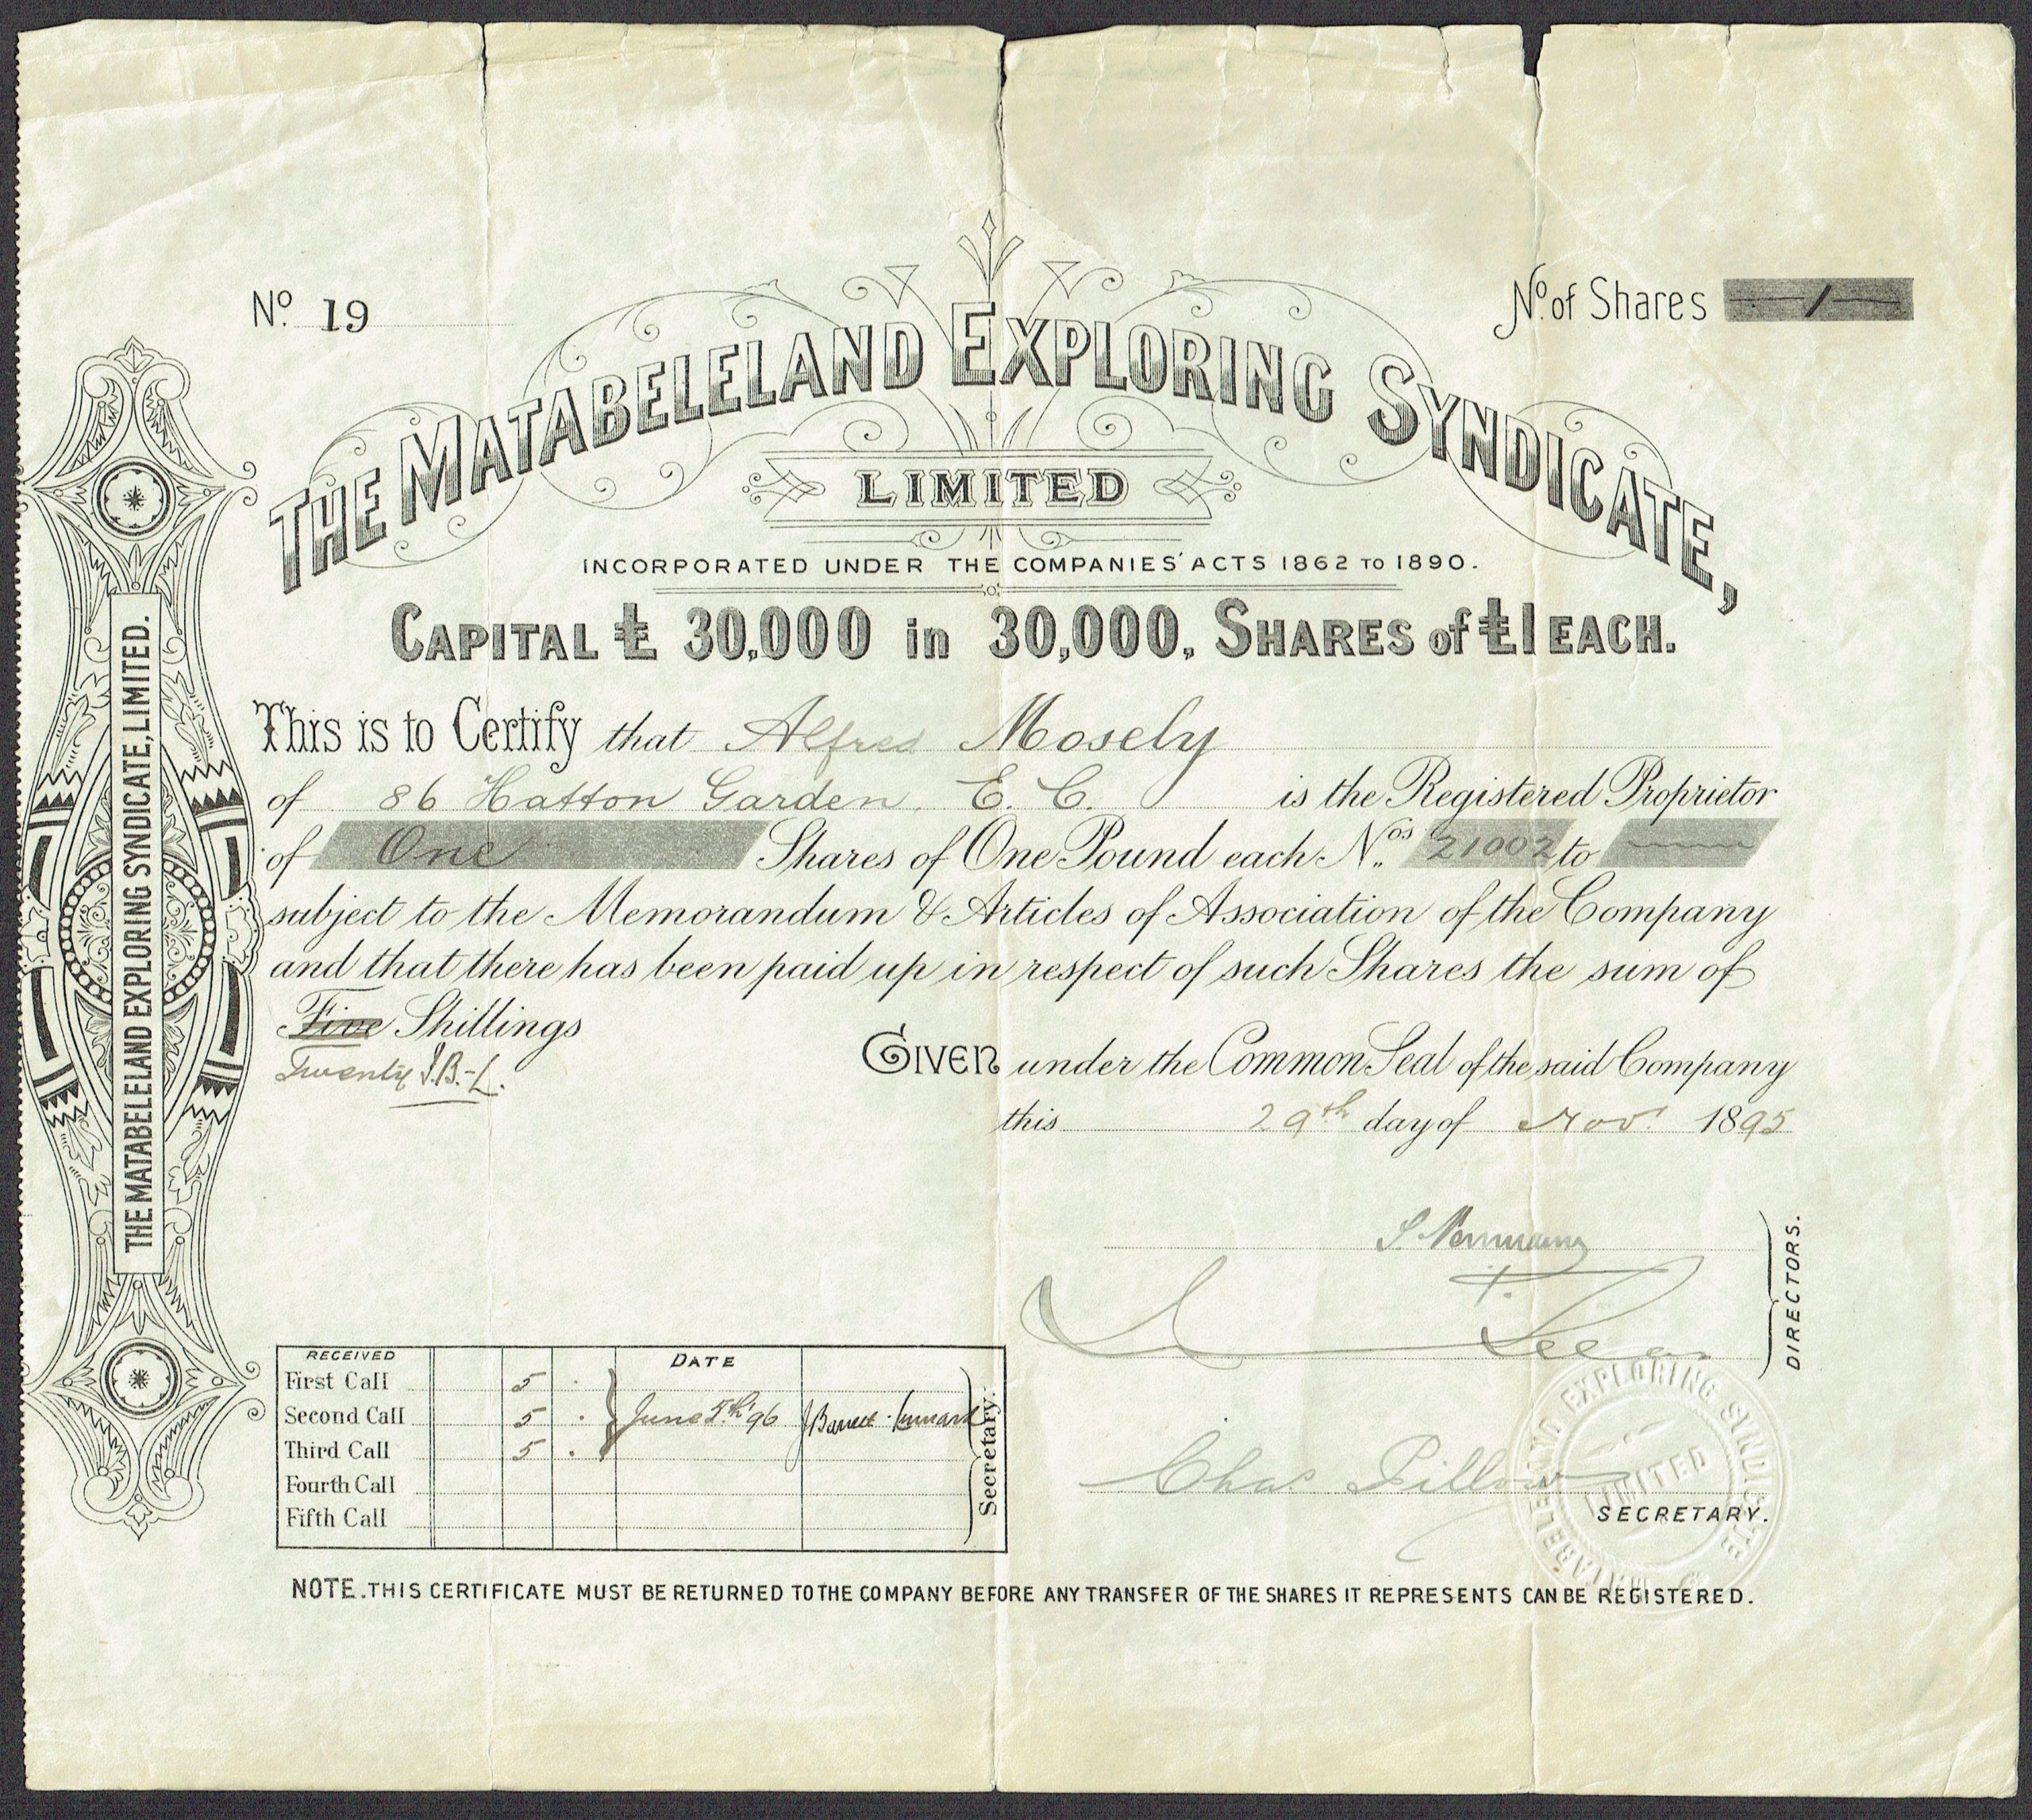 No. 19
No. of Shares 1
THE MATABELELAND EXPLORING SYNDICATE,
LIMITED
INCORPORATED UNDER THE COMPANIES' ACTS 1862 TO 1890.
CAPITAL £ 30,000 in 30,000, SHARES of £1 EACH.
This is to Certify that Alfred Mosely
of 86 Hatton Garden E. C. is the Registered Proprietor
of One Shares of One Pound each Nos. 21002 to
subject to the Memorandum & Articles of Association of the Company
and that there has been paid up in respect of such Shares the sum of
Five Shillings
Twenty J.B.-L.
GIVEN under the Common Seal of the said Company
this 29th day of Nov. 1895
THE MATABELELAND EXPLORING SYNDICATE, LIMITED.
DIRECTORS.
RECEIVED DATE
First Call 5 .
Second Call 5 . June 5th 96 J Barrett-Lennard
Third Call 5 .
Fourth Call
Fifth Call
Secretary.
Chas. Pillow
SECRETARY.
MATABELELAND EXPLORING SYNDICATE
LIMITED
NOTE. THIS CERTIFICATE MUST BE RETURNED TO THE COMPANY BEFORE ANY TRANSFER OF THE SHARES IT REPRESENTS CAN BE REGISTERED.